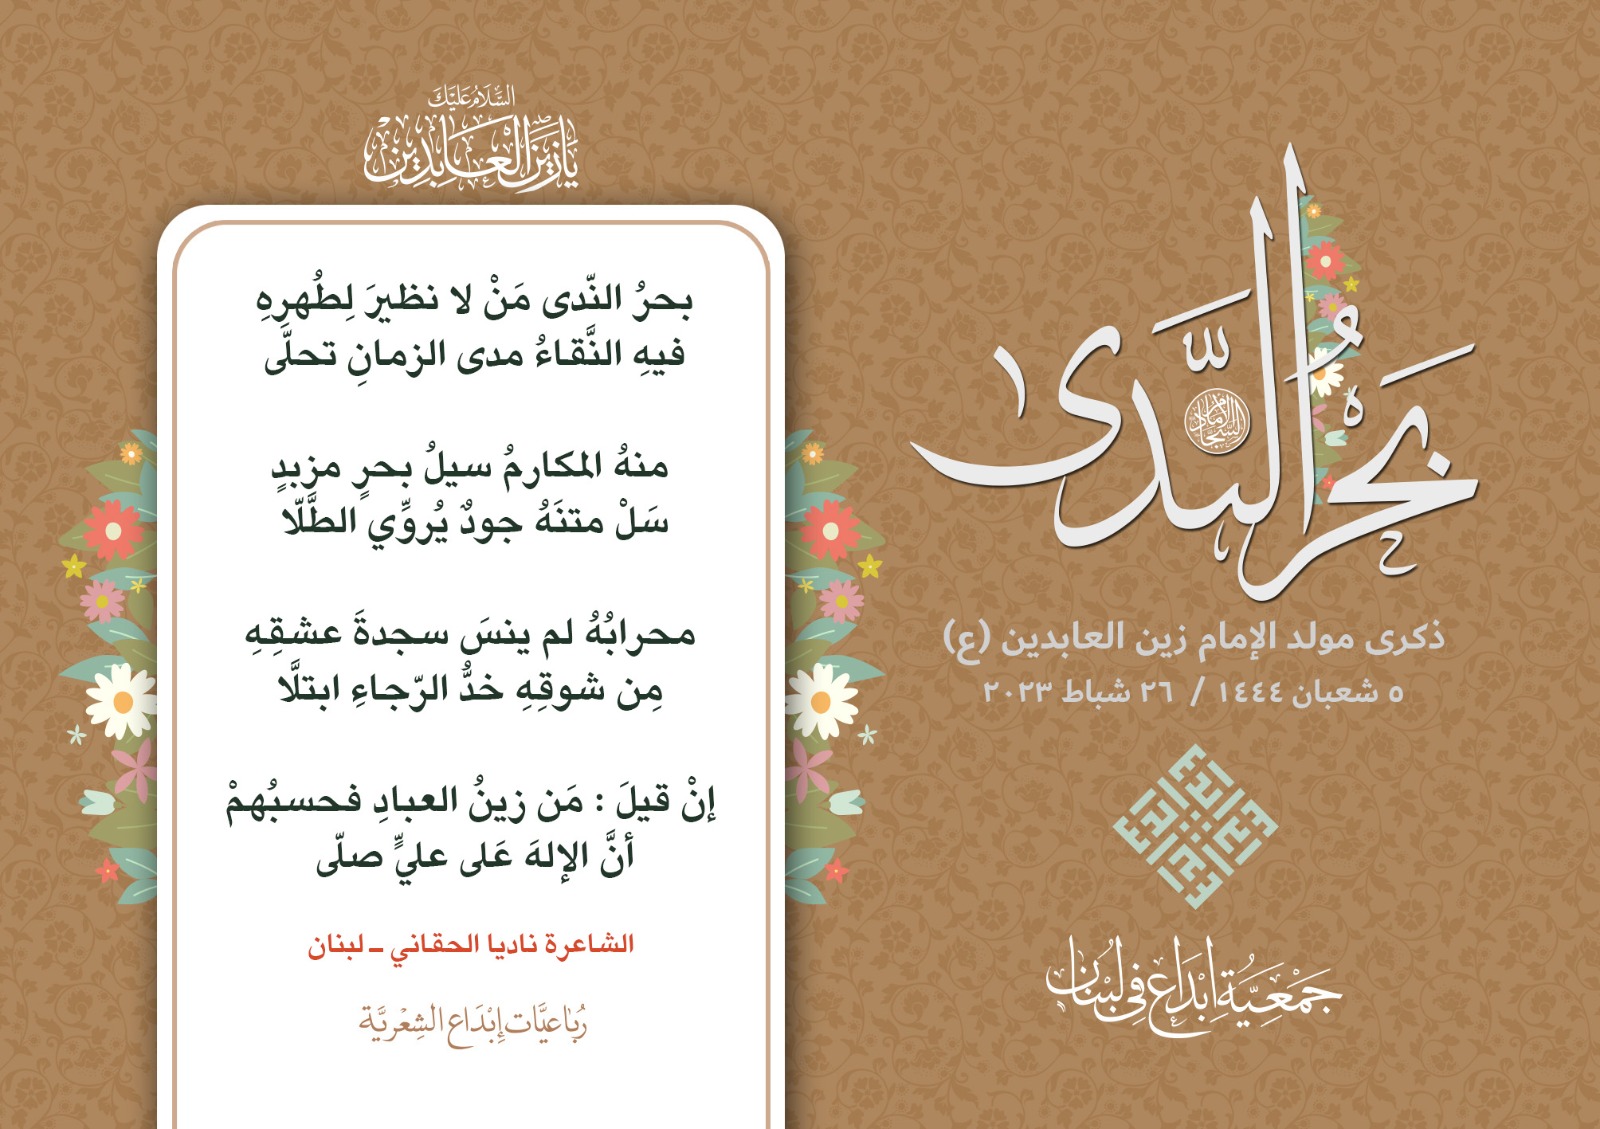 بَحْرُ النَّدى
الإمام السجاد
ذكرى مولد الإمام زين العابدين (ع)
٥ شعبان ١٤٤٤ / ٢٦ شباط ٢٠٢٣
إبداع
جَمْعِيَّة إبْدَاع فِي لُبْنَان
السَّلَامُ عَلَيْكَ
يَا زَيْنَ الْعَابِدِينَ
بحرُ النّدى مَنْ لا نظيرَ لِطُهرِهِ
فيهِ النَّقاءُ مدى الزمانِ تحلَّى
منهُ المكارمُ سيلُ بحرٍ مزبدٍ
سَلْ متنَهُ جودٌ يُروِّي الطَّلّا
محرابُهُ لم ينسَ سجدةَ عشقِهِ
مِن شوقِهِ خدُّ الرّجاءِ ابتلَّا
إنْ قيلَ : مَن زينُ العبادِ فحسبُهمْ
أنَّ الإلهَ عَلى عليٍّ صلّى
الشاعرة ناديا الحقاني ـ لبنان
رُبَاعيَّات إِبْدَاع الشِعْريَّة